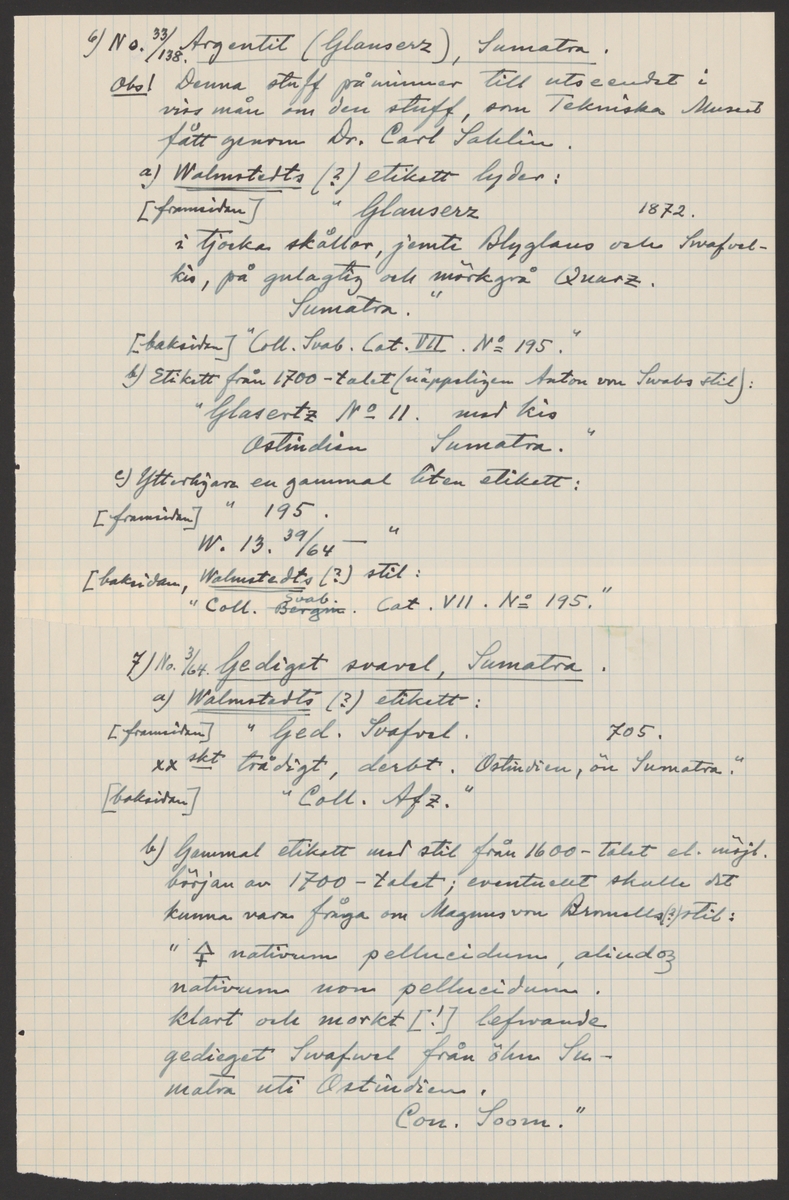 6) No. 33/138. Argentit (Glanserz), Sumatra.
Obs! Denna stuff påminner till utseendet i
viss mån om den stuff, som Tekniska Museet
fått genom Dr. Carl Sahlin.
a) Walmstedts (?) etikett lyder:
[framsidan] " Glanserz 1872.
i tjocka skållor, jemte Blyglans och Swafvel-
kis, på gulagtig och mörkgrå Quarz.
Sumatra."
[baksidan] "Coll. Svab. Cat. VII. No 195."
b) Etikett från 1700-talet (näppeligen Anton von Swabs stil):
"Glasertz No 11. med kis
Ostindien Sumatra."
c) Ytterligare en gammal liten etikett:
[framsidan] " 195.
W. 13. 39/64 — "
[baksidan, Walmstedts (?) stil:
Svab.
"Coll. Bergm. Cat. VII. No 195."
7) No. 3/64. Gediget svavel, Sumatra.
a) Walmstedts (?) etikett:
[framsidan] " Ged. Svafvel. 705.
xx skt trådigt, derbt. Ostindien, ön Sumatra."
[baksidan] "Coll. Afz."
b) Gammal etikett med stil från 1600-talet el. möjl.
början av 1700-talet; eventuellt skulle det
kunna vara fråga om Magnus von Bromells (?) stil:
" 🜍 nativum pellucidum, aliud
nativum non pellucidum.
klart och morkt [!] lefwande
gedieget Swafwel från öhn Su-
matra uti Ostindien.
Con. Soom."